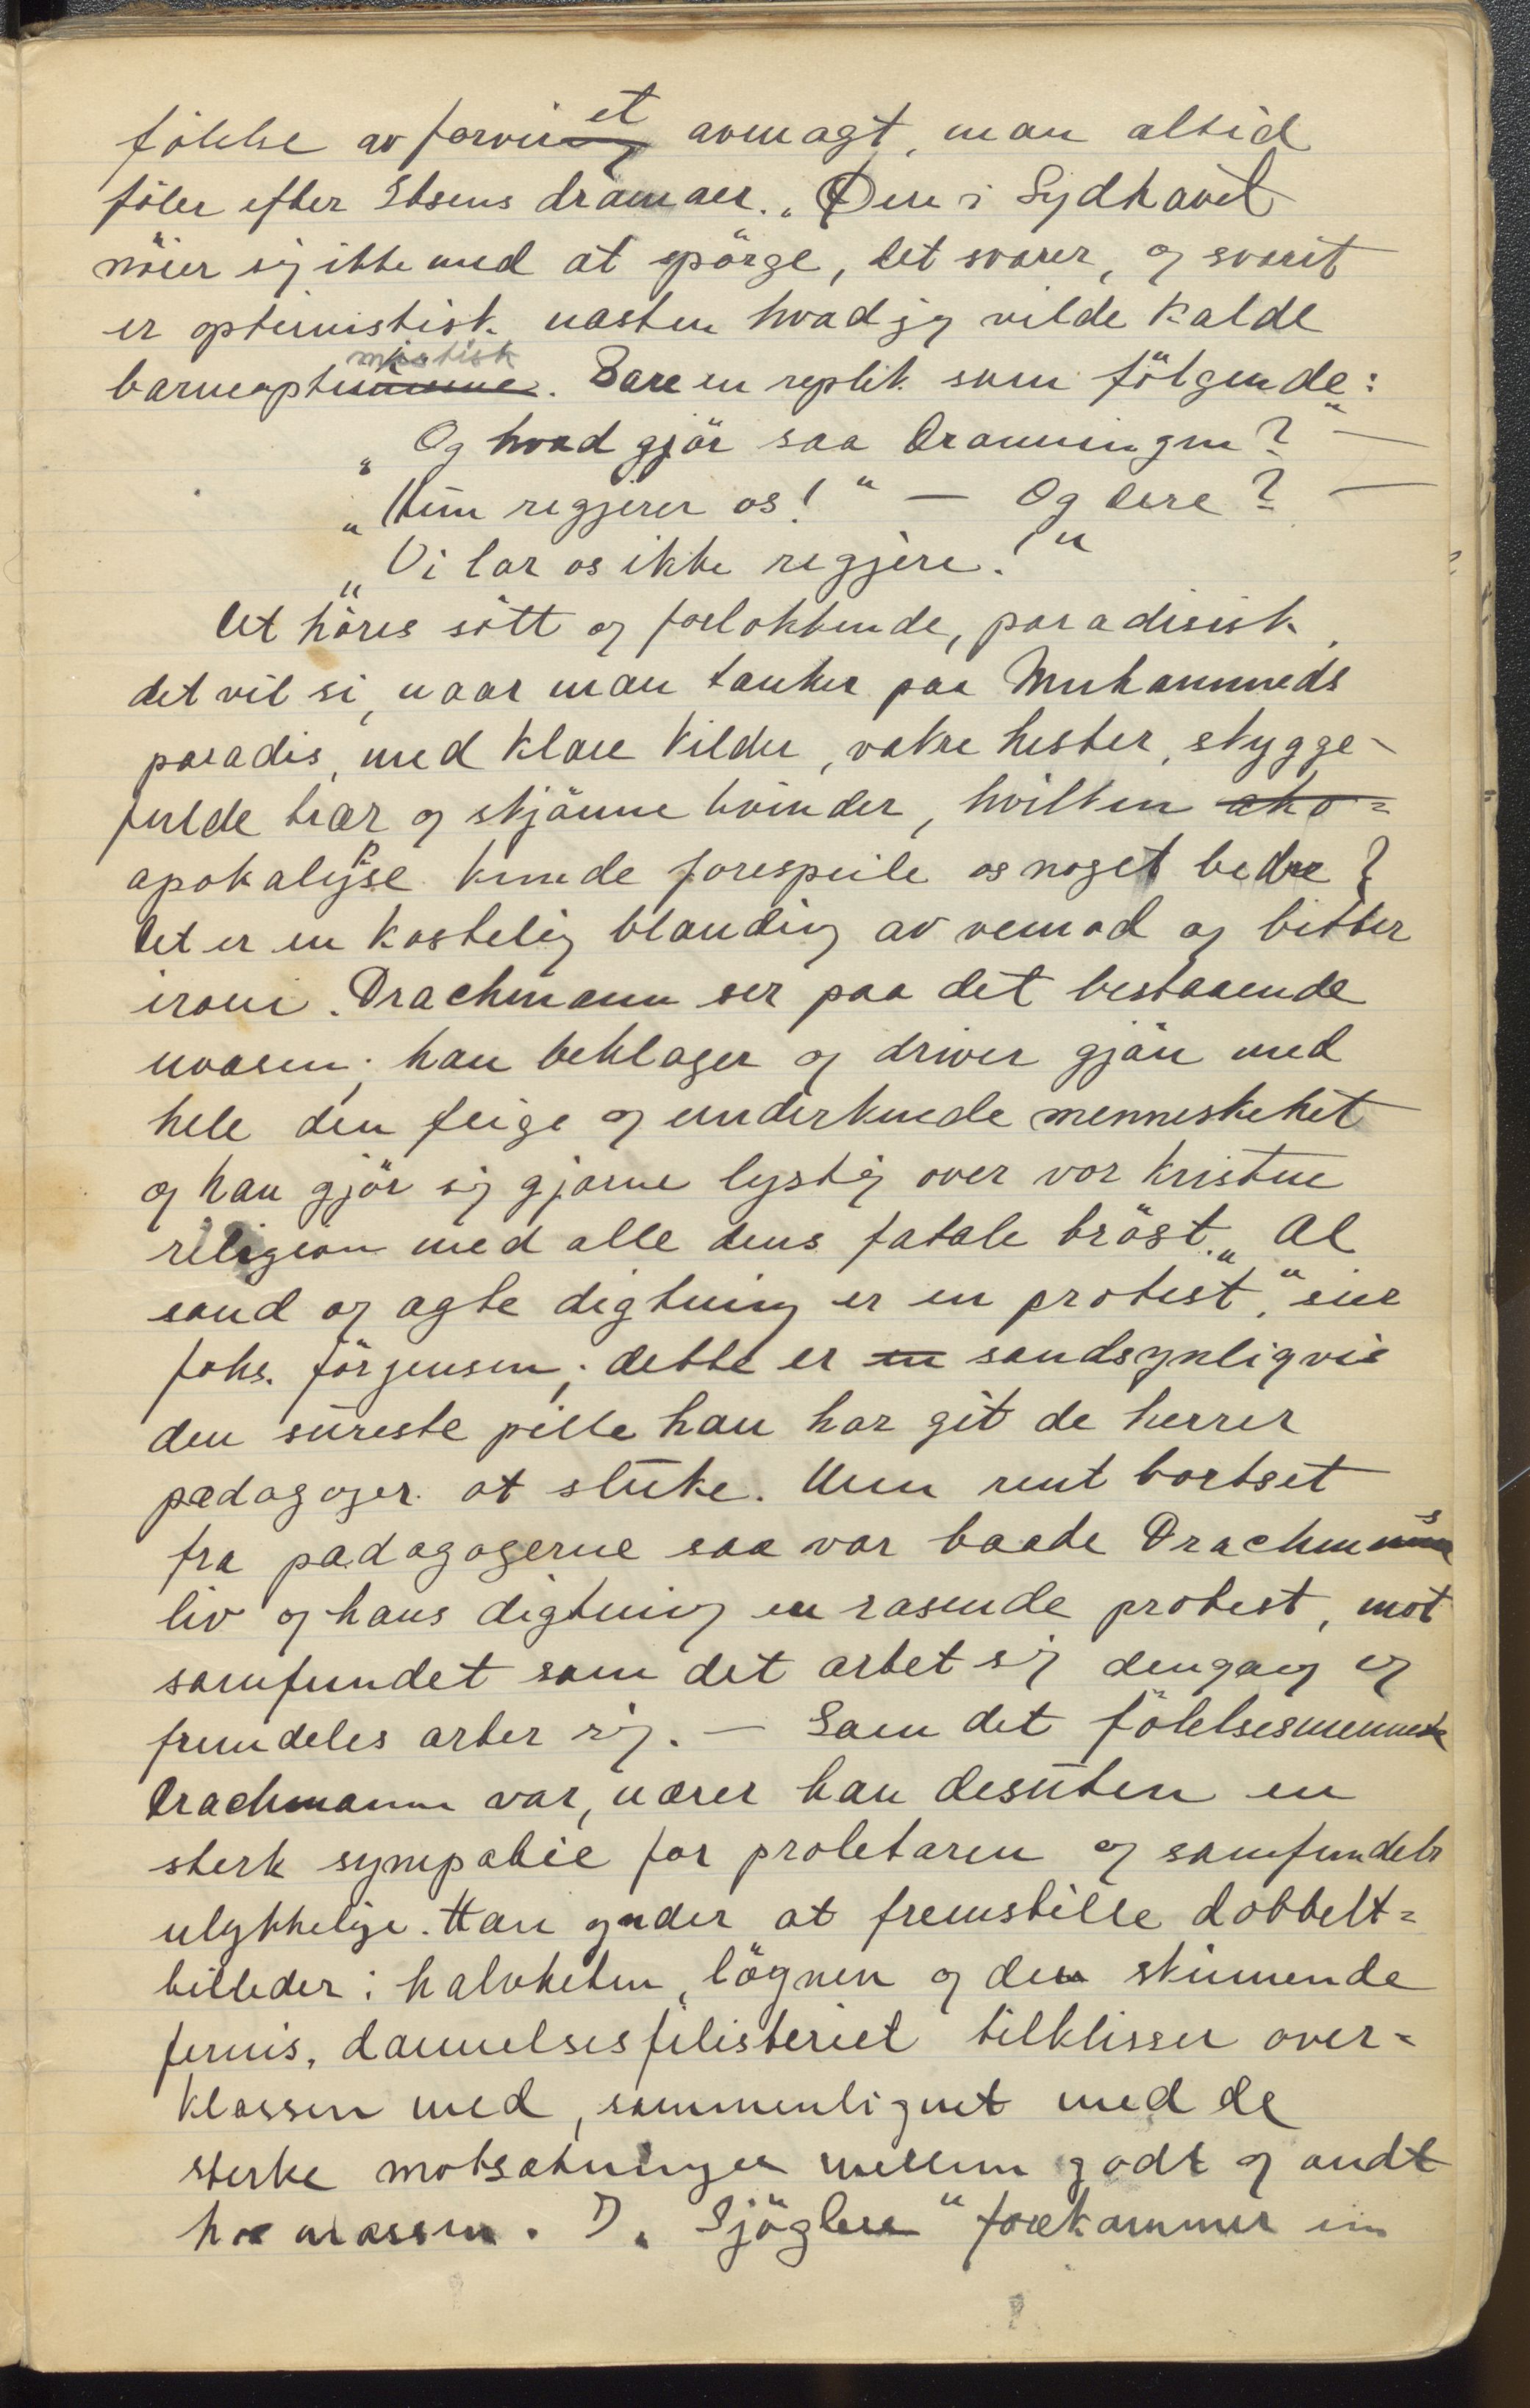 fölelse av forvirret avmagt, man altid
föler efter Ibsens dramaer. „Øen i Sydhavet
nöier sig ikke med at spörge, det svarer, og svaret
er optimistisk næsten hvad jeg vilde kalde
barneoptimistisk. Bare en replik som fölgende:
„Og hvad gjör saa Dronningen?" —
„Hun regjerer os!" — Og dere? —
„Vi lar os ikke regjere!"
Det höres sött og forlokkende, paradisisk,
det vil si, naar man tænker paa Muhammeds
paradis, med klare kilder, vakre hester, skygge-
fulde trær og skjönne kvinder, hvilken
apokalypse kunde forespeile os noget bedre?
Det er en kostelig blanding av vemod og bitter
ironi. Drachmann ser paa det bestaaende
uvæsen; han beklager og driver gjön med
hele den feige og underkuede menneskehet
og han gjör sig gjerne lystig over vor kristne
religion med alle dens fatale bröst. „Al
sand og ægte digtning er en protest," sier
Johs. Jörgensen; dette er en sandsynligvis
den sureste pille han har git de herrer
pædagoger at sluke. Men rent bortset
fra pædagogerne saa var baade Drachmanns
liv og hans digtning en rasende protest, mot
samfundet som det artet sig dengang og
fremdeles arter sig. — Som det fölelsesmenneske
Drachmann var, nærer han desuten en
sterk sympatie for proletaren og samfundets
ulykkelige. Han ynder at fremstille dobbelt=
billeder: halvheten, lögnen og den skinnende
fernis, dannelsesfilisteriet tilklisser over=
klassen med, sammenlignet med de
sterke motsætninger mellem godt og ondt
hos massen. I „Sjöglere" forekommer en